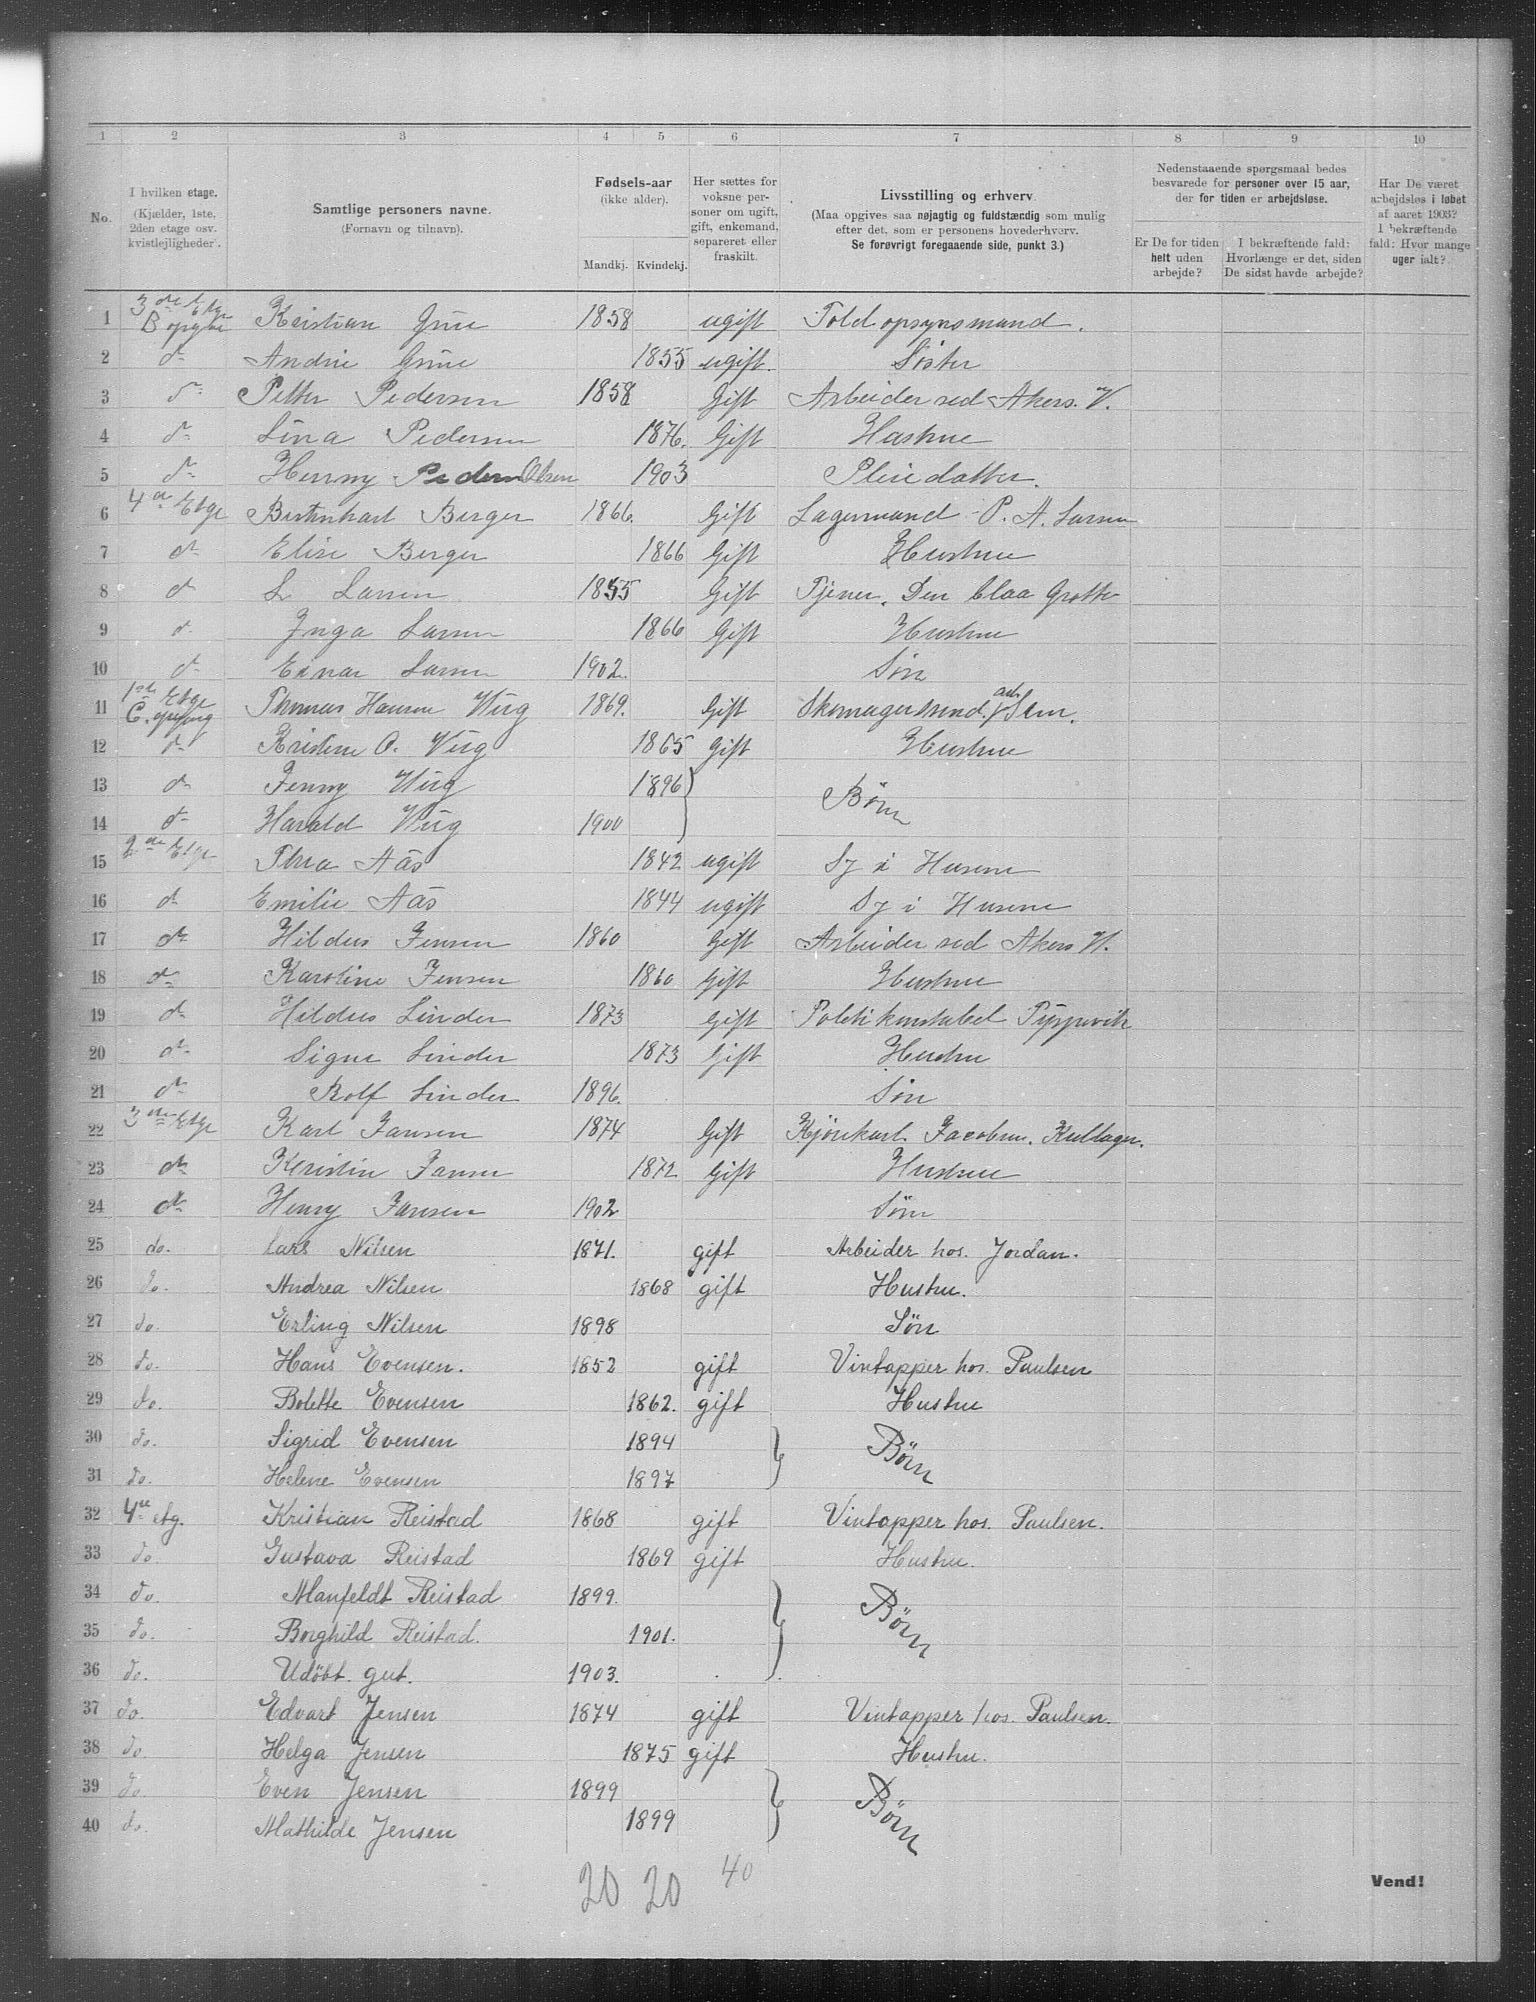 1 2 3 4 5 6 7 8 9 10
No.
I hvilken etage.
(Kjælder, 1ste, 2den etage osv. kvistlejligheder).
Samtlige personers navne.
(Fornavn og tilnavn).
Fødsels-aar
(ikke alder).
Mandkj. Kvindekj.
Her sættes for voksne personer om ugift, gift, enkemand, separeret eller fraskilt.
Livsstilling og erhverv
(Maa opgives saa nøjagtig og fuldstændig som mulig efter det, som er personens hovederhverv.
Se forøvrigt foregaaende side, punkt 3.)
Nedenstaaende spørgsmaal bedes besvarede for personer over 15 aar, der for tiden er arbejdsløse.
Er De for tiden helt uden arbejde?
I bekræftende fald: Hvorlænge er det, siden De sidst havde arbejde?
Har De været arbejdsløs i løbet af aaret 1903? I bekræftende fald: Hvor mange uger ialt?
1 3de Etge B opgbe Kristian Grue 1858 ugift Toldopsynsmand.
2 do Andrie Grue 1855 ugift. Søster
3 do Petter Pedersen 1858 Gift Arbeider ved Akers. V.
4 do Lina Pedersen 1876. Gift Hustrue
5 do Henny Pedersen Olsen 1903 Pleiedatter.
6 4de Etge Berthart Berger 1866. Gift Lagermand P. A. Larsen
7 do Elise Berger 1866 Gift Hustrue
8 do L Larsen 1855 Gift Tjener. Den blaa Grotte
9 do Inga Larsen 1866 Gift Hustrue
10 do Einar Larsen 1902. Søn
11 1ste Etge C. opgang Thomas Hansen Wiig 1869. Gift Skomagersvend.
12 do Kristine O. Wiig 1865 Gift Hustrue
13 do Jenny Wiig 1896 } Børn
14 do Harald Wiig 1900
15 2de Etge Thea Aas 1842 ugift Sy i Husene
16 do Emilie Aas 1844 ugift Sy i Husene
17 do Hildus Jensen 1860 Gift Arbeider ved Akers V.
18 do Karoline Jensen 1860 Gift Hustrue
19 do Hildus Linder 1873 Gift Politikonstabel Pippervik
20 do Signe Linder 1873 Gift Hustru
21 do Rolf Linder 1896. Søn
22 3die Etge Karl Jansen 1874 Gift Kjørekarl. Jacobsen. Kullager.
23 do Kristin Jansen 1872 Gift Hustrue
24 do Henry Jansen 1902 Søn
25 do. Carl Nilsen 1871. gift Arbeider hos. Jordan.
26 do. Andrea Nilsen 1868 gift Hustru.
27 do. Erling Nilsen 1898 Søn
28 do. Hans Evensen. 1852 gift Vintapper hos. Paulsen
29 do. Bolette Evensen 1862. gift Hustru
30 do. Sigrid Evensen 1894 } Børn
31 do. Helene Evensen 1897
32 4de etg. Kristian Reistad 1868 gift Vintapper hos. Paulsen.
33 do. Gustava Reistad 1869 gift Hustru.
34 do. Manfeldt Reistad 1899. } Børn
35 do. Borghild Reistad. 1901.
36 do. Udöbt. gut. 1903.
37 do. Edvart Jensen 1874 gift Vintapper hos. Paulsen.
38 do Helga Jensen 1875 gift Hustru.
39 do. Even Jensen 1899 } Børn
40 do. Mathilde Jensen 1899
20 20 40
Vend!